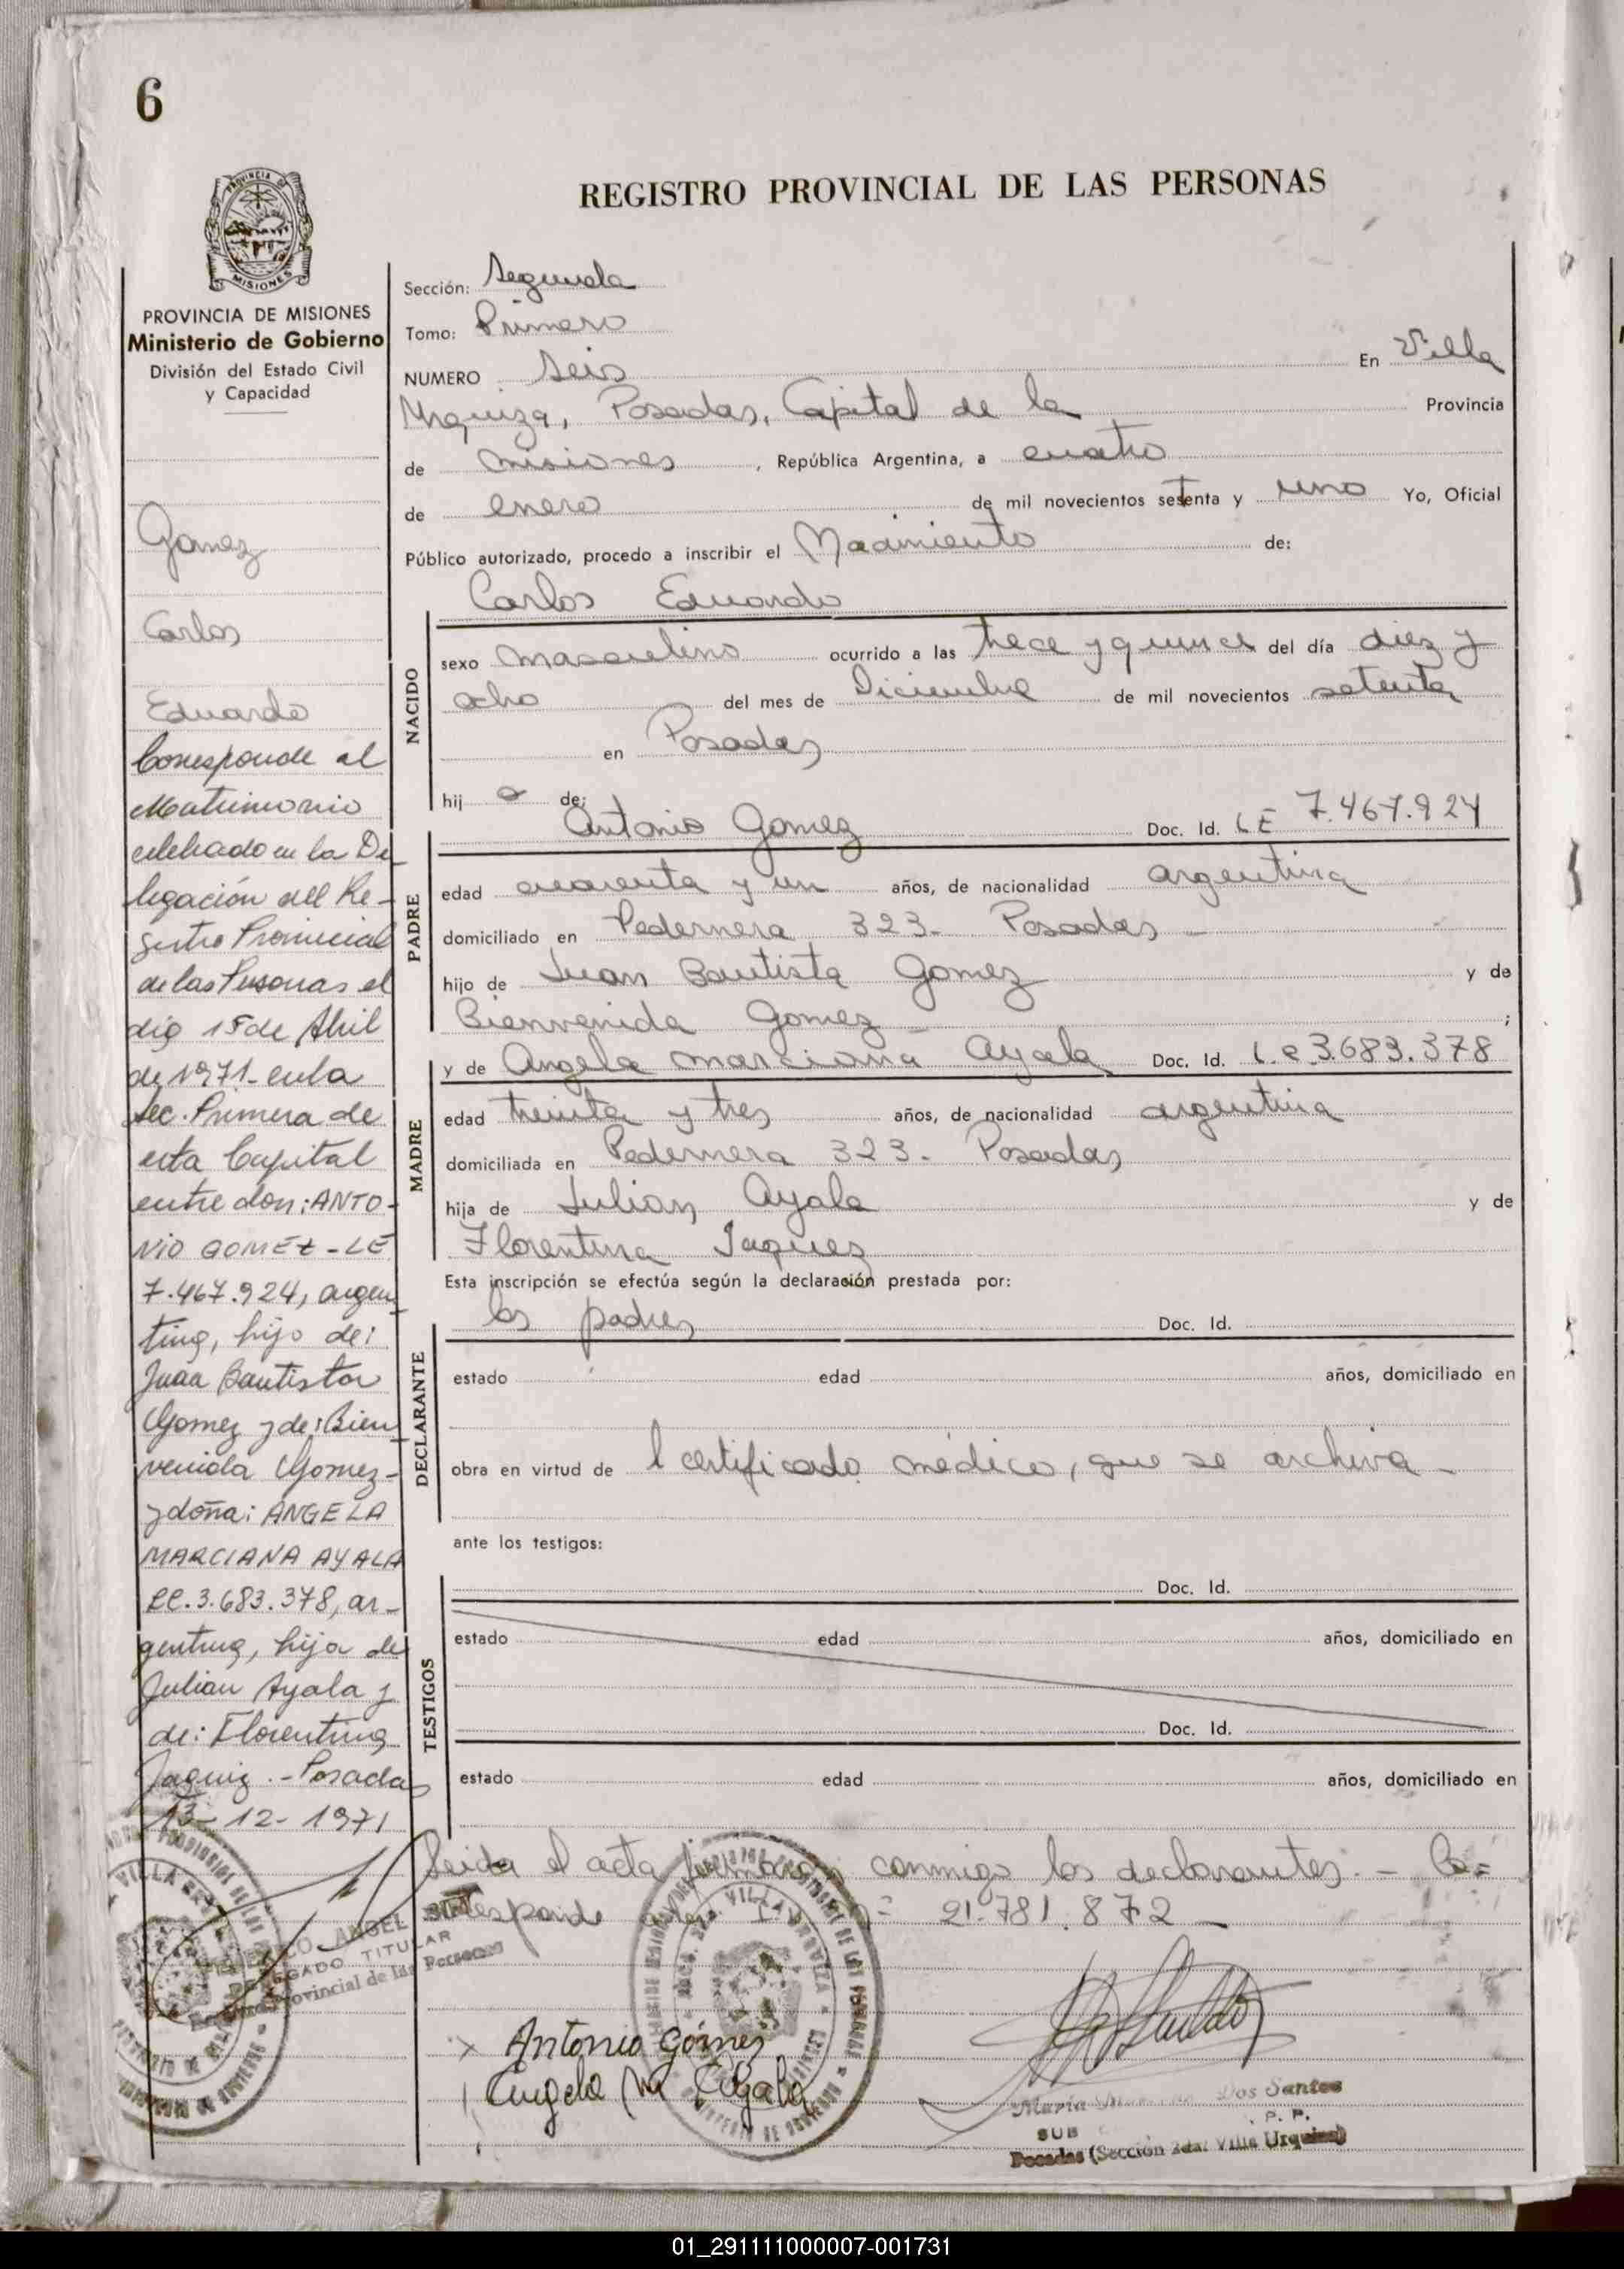 6
REGISTRO PROVINCIAL DE LAS PERSONAS
PROVINCIA DE MISIONES
MISIONES
PROVINCIA DE MISIONES
Ministerio de Gobierno
División del Estado Civil
y Capacidad
Gomez
Carlos
Eduardo
Corresponde al
Matrimonio
celebrado en la De-
legación del Re-
gistro Provincial
de las Personas el
día 15 de Abril
de 1971 - en la
Sec. Primera de
esta Capital
entre don: ANTO-
NIO GOMEZ - LE
7.467.924, argen-
tino, hijo de:
Juan Bautista
Gomez y de: Bien-
venida Gomez -
y doña: ANGELA
MARCIANA AYALA
LC. 3.683.378, ar-
gentina, hija de
Julian Ayala y
de: Florentina
Jaquez . - Posadas
13 - 12 - 1971
Sección: Segunda
Tomo: Primero
NUMERO Seis En Villa
Urquiza, Posadas, Capital de la Provincia
de Misiones, República Argentina, a cuatro
de enero de mil novecientos setenta y uno Yo, Oficial
Público autorizado, procedo a inscribir el Nacimiento de:
Carlos Eduardo
NACIDO
sexo masculino ocurrido a las trece y quince del día diez y
ocho del mes de Diciembre de mil novecientos setenta
en Posadas
hij o de: Antonio Gomez Doc. Id. LE 7.467.924
PADRE
edad cuarenta y un años, de nacionalidad argentina
domiciliado en Pedernera 323 - Posadas -
hijo de Juan Bautista Gomez y de
Bienvenida Gomez - ;
y de Angela Marciana Ayala Doc. Id. L.C 3.683.378
MADRE
edad treinta y tres años, de nacionalidad argentina
domiciliada en Pedernera 323 - Posadas
hija de Julian Ayala y de
Florentina Jaquez
Esta inscripción se efectúa según la declaración prestada por:
los padres Doc. Id.
DECLARANTE
estado edad años, domiciliado en
obra en virtud de l certificado médico, que se archiva -
ante los testigos:
Doc. Id.
TESTIGOS
estado edad años, domiciliado en
Doc. Id.
estado edad años, domiciliado en
Leida el acta firmaron conmigo los declarantes. - Co=
rresponde 21.781.872 -
ANGEL
DELEGADO TITULAR
Provincial de las Personas
Antonio Gómez
Angela Ma Ayala
Maria Dos Santos
SUB P. P.
Posadas (Sección 2da. Villa Urquiza)
01_291111000007-001731